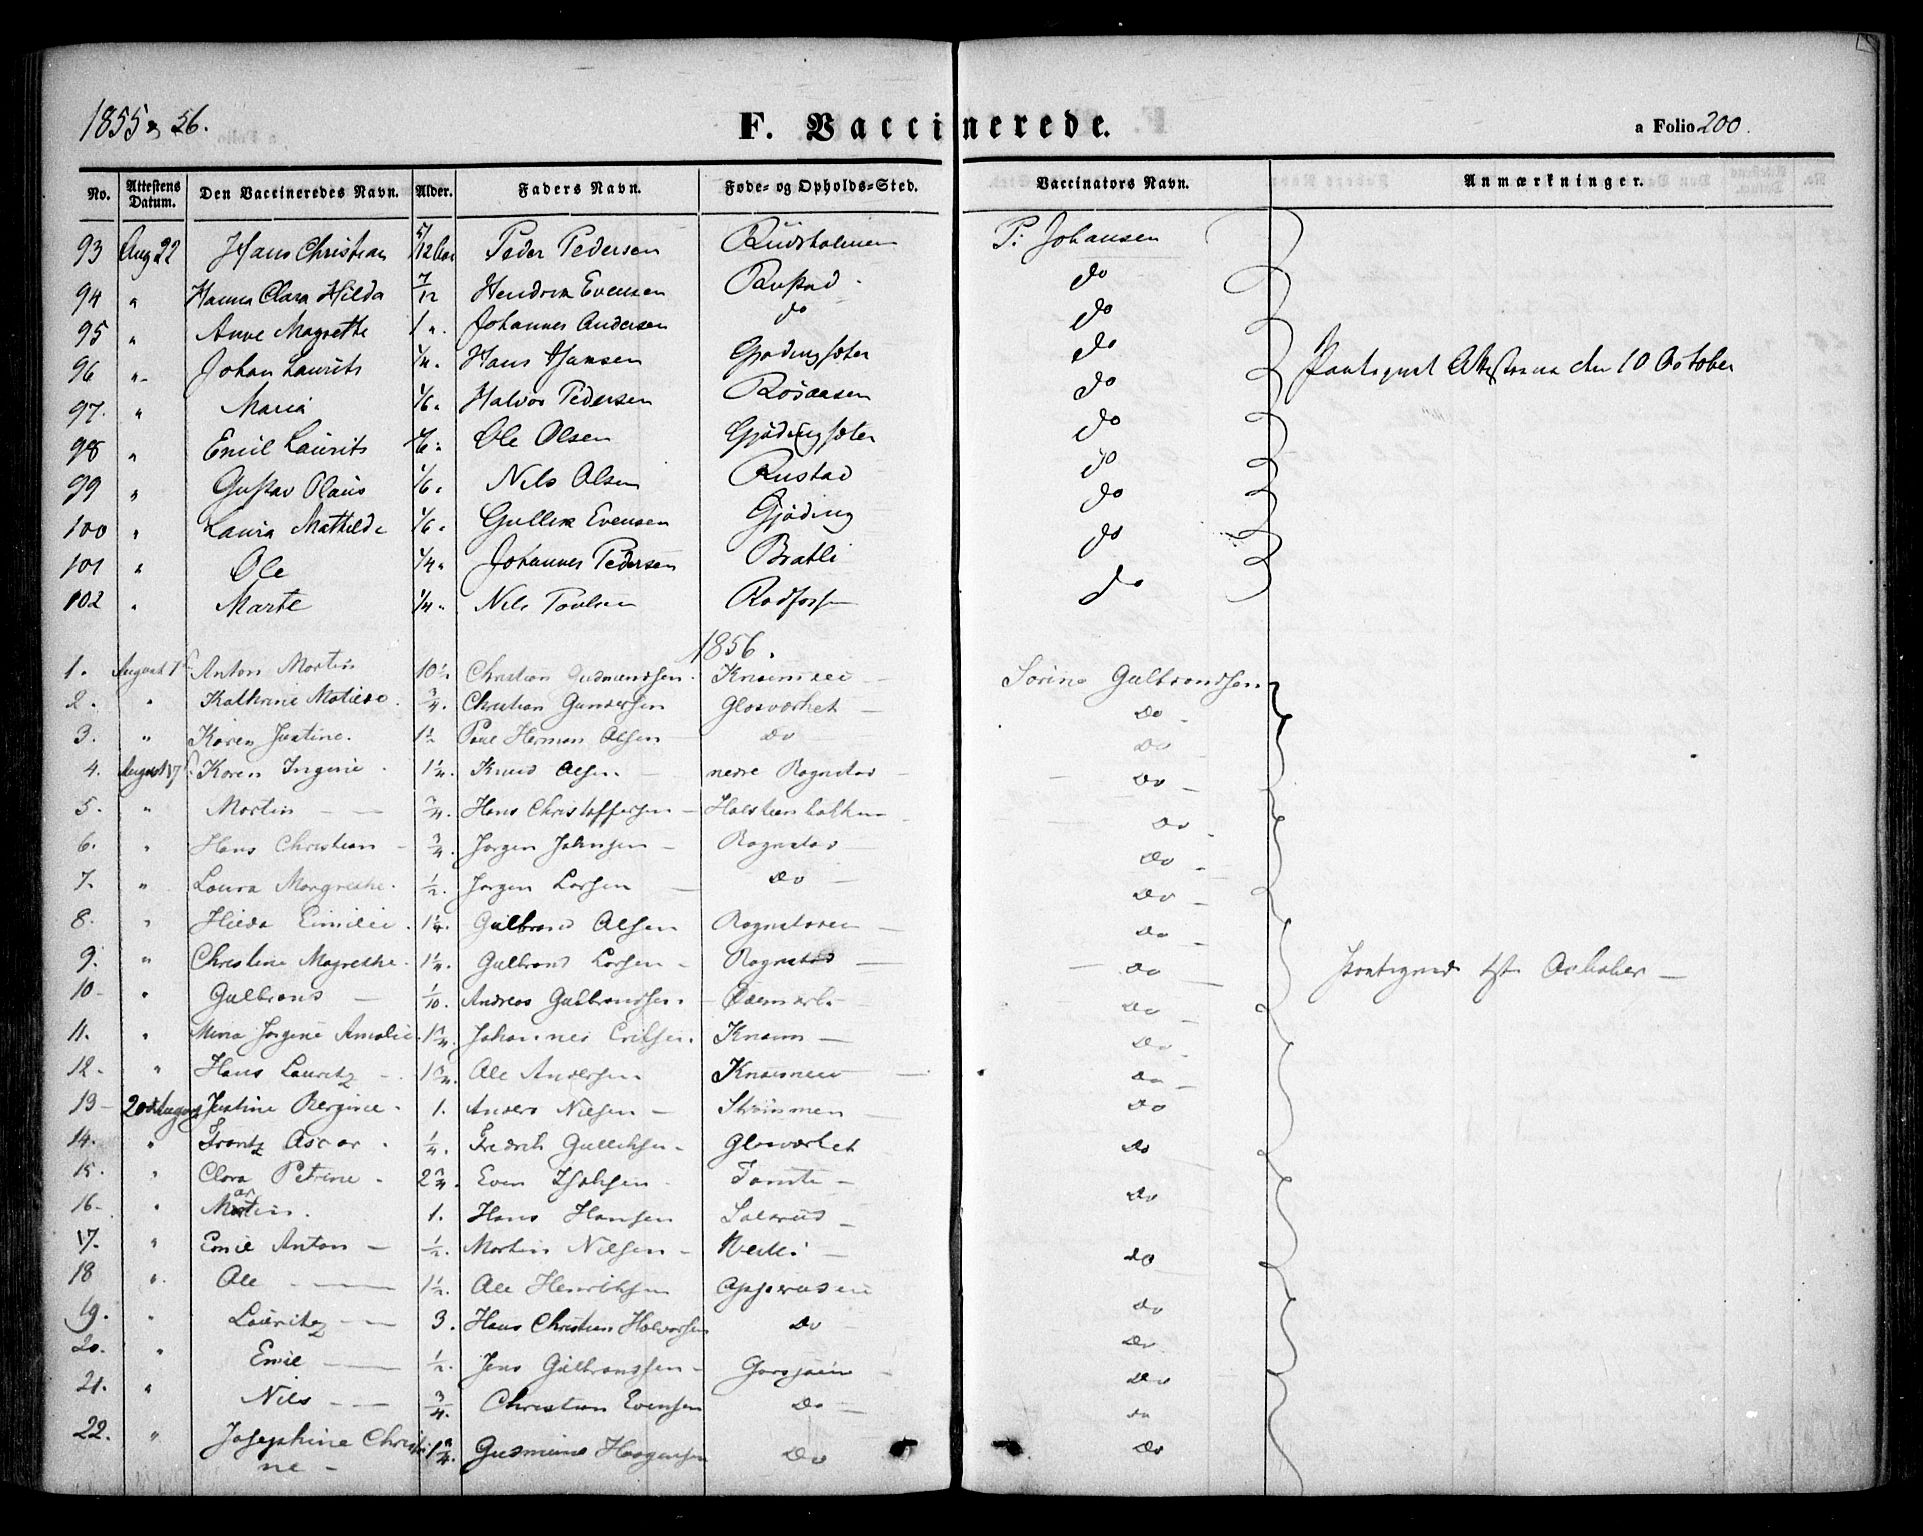 1855 & 56.
F. Vaccinerede.
a Folio 200.
No. Attestens Datum. Den Vaccineredes Navn. Alder. Faders Navn. Føde- og Opholds-Sted. Vaccinators Navn. Anmærkninger.
93 Aug 22 Hans Christian 5/12 Peder Pedersen P: Johansen
94 " Hanna Clara Hilda 7/12 Hendrik Evensen Rustad do
95 " Anne Magrethe 1 " Johannes Andersen do do
96 " Johan Laurits 1/4 " Hans Hansen Gjødingsæter do Attesterne den 10 October
97. " Maria 1/6 " Halvor Pedersen Rosaasen do
98 " Emil Laurits 1/6 " Ole Olsen Gjødingsæter do
99 " Gustav Olaus 1/6 " Nils Olsen Rustad do
100 " Laura Mathilde 1/6 " Gullik Evensen Gjøding do
101 " Ole 1/4 " Johannes Pedersen Bratli do
102 " Marte 1/4 " Nils Poulsen Rodfossen do
1856.
1. August 1 Anton Martin 10 1/2 Christian Gudmundsen. Sørine Gulbrandsen
2. " Kathrine Matiese. 3/4 Christian Gundersen Glasværket Do
3. " Karen Justine. 1 1/2 Paul Herman Olsen Do Do
4. August 17 Karen Ingerie. 1 1/4. Knud Olsen nedre Rognstad Do
5. " Martin 3/4. Hans Christoffersen Do
6. " Hans Christian 3/4 Jørgen Johnsen Rognstad Do
7. " Laura Margrethe. 1/2. Jørgen Larsen Do Do
8. " Hilda Emilie. 1 1/4. Gulbrand Olsen Do
9. " Christine Magrethe. 1 1/4. Gulbrand Larsen Rognstad Do October
10 " Gulbrand 1/10. Andreas Gulbrandsen. Do
11. " Mina Jørgine Amalie. 1 3/4. Johannes Eriksen. Knaim Do
12. " Hans Lauritz 1 3/4. Ole Andersen. Do
13 20de August Justine Bergine. 1. Anders Nielsen Strømmen Do
14. " Frantz Oscar. 1/4. Fredrik Gulliksen. Glasværket Do
15. " Clara Petrine. 2 3/4. Even Tomte Do
16. " Martin. 1. Hans Hansen Do
17. " Emil Anton 1/2. Martin Nilsen Do
18 " Ole 1 1/2. Ole Henriksen Do
19. " Lauritz 3. Hans Christian Halvorsen Do Do
20. " Emil 1/2. Jens Gulbrandsen Do
21. " Nils 3/4. Christian Evensen Do Do
22. " Josephine Christi- 1 3/4. Haagensen Do Do
ne